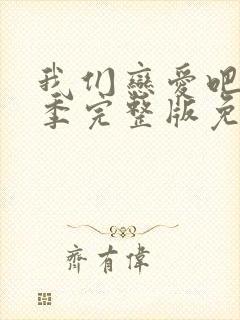 我们恋爱吧
季完整版免
齐有伟